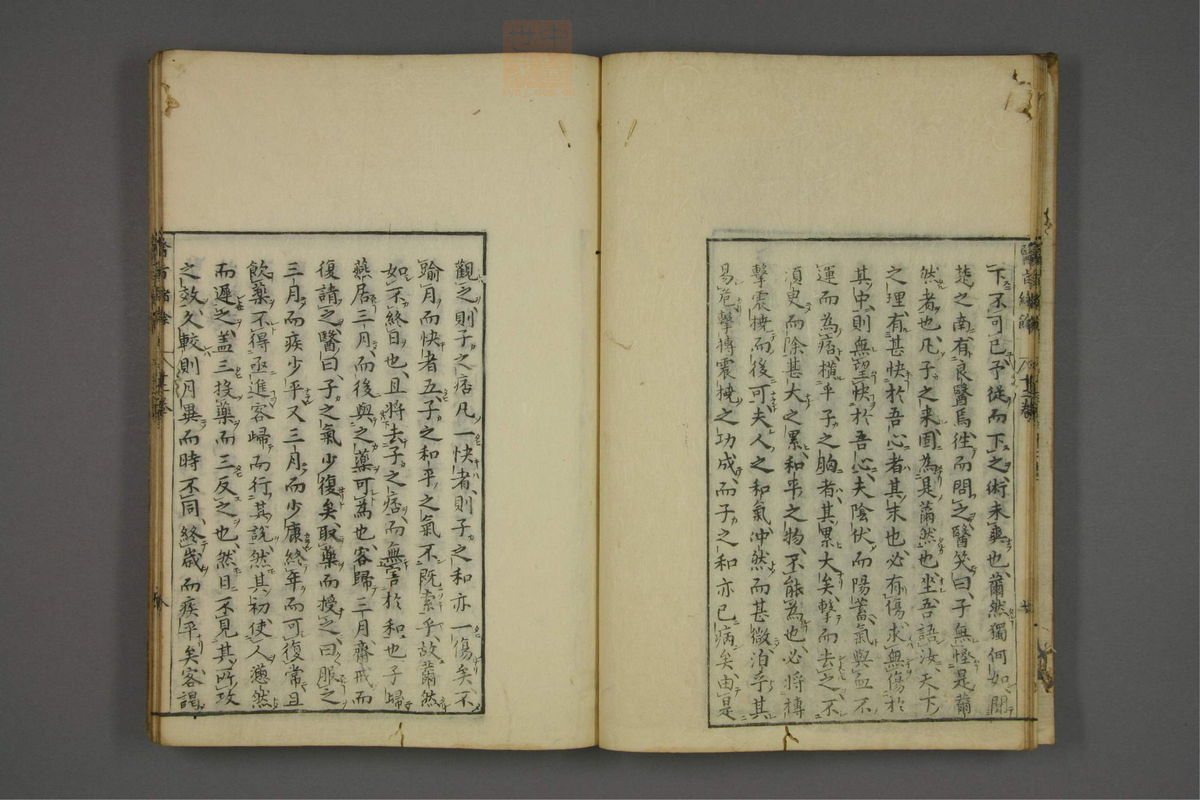 下不可已予從而下之術未爽也薾然獨何如聞
楚之南有良醫焉徃而問之醫笑曰子無怪是薾
然者也凡子之来固為是薾然也坐吾語汝天下
之理有甚快於吾心者其末也必有傷求無傷於
其中則無望快於吾心夫陰伏而陽蓄氣與血不
運而為痞横乎子之胸者其累大矣擊而去之不
須臾而除甚大之累和平之物不能為也必將摶
擊震撓而後可夫人之和氣冲然而甚微泊乎其
易危擊摶震撓之功成而子之和亦已病矣由是
觀之則子之痞凡一快者則子之和亦一傷矣不
踰月而快者五子之和平之氣不既索乎故薾然
如不終日也且將去子之痞而無害於和也子歸
燕居三月而後與之藥可為也客歸三月齋戒而
復請之醫曰子之氣少復矣取藥而授之曰服之
三月而疾少平又三月而少康終年而可復常且
飲藥不得亟進客歸而行其説然其初使人懣然
而遲之盖三投藥而三反之也然日不見其所攻
之效久較則月異而時不同終歲而疾平矣客謁